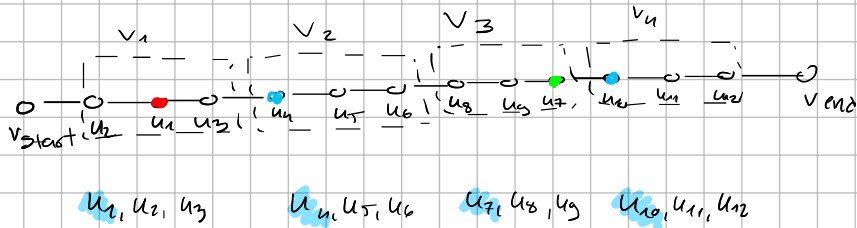 V1 V2 V3 V4
vstart u2 u1 u3 u4 u5 u6 u8 u9 u7 u10 u11 u12 vend
u1, u2, u3 u4, u5, u6 u7, u8, u9 u10, u11, u12